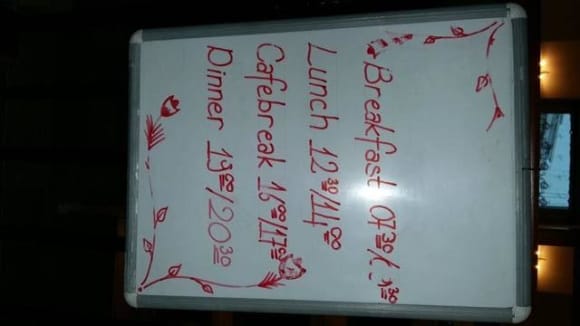 Breakfast 07³⁰/
Lunch 12³⁰/14⁰⁰
Cafebreak 16⁰⁰/17⁰⁰
Dinner 19⁰⁰/20³⁰